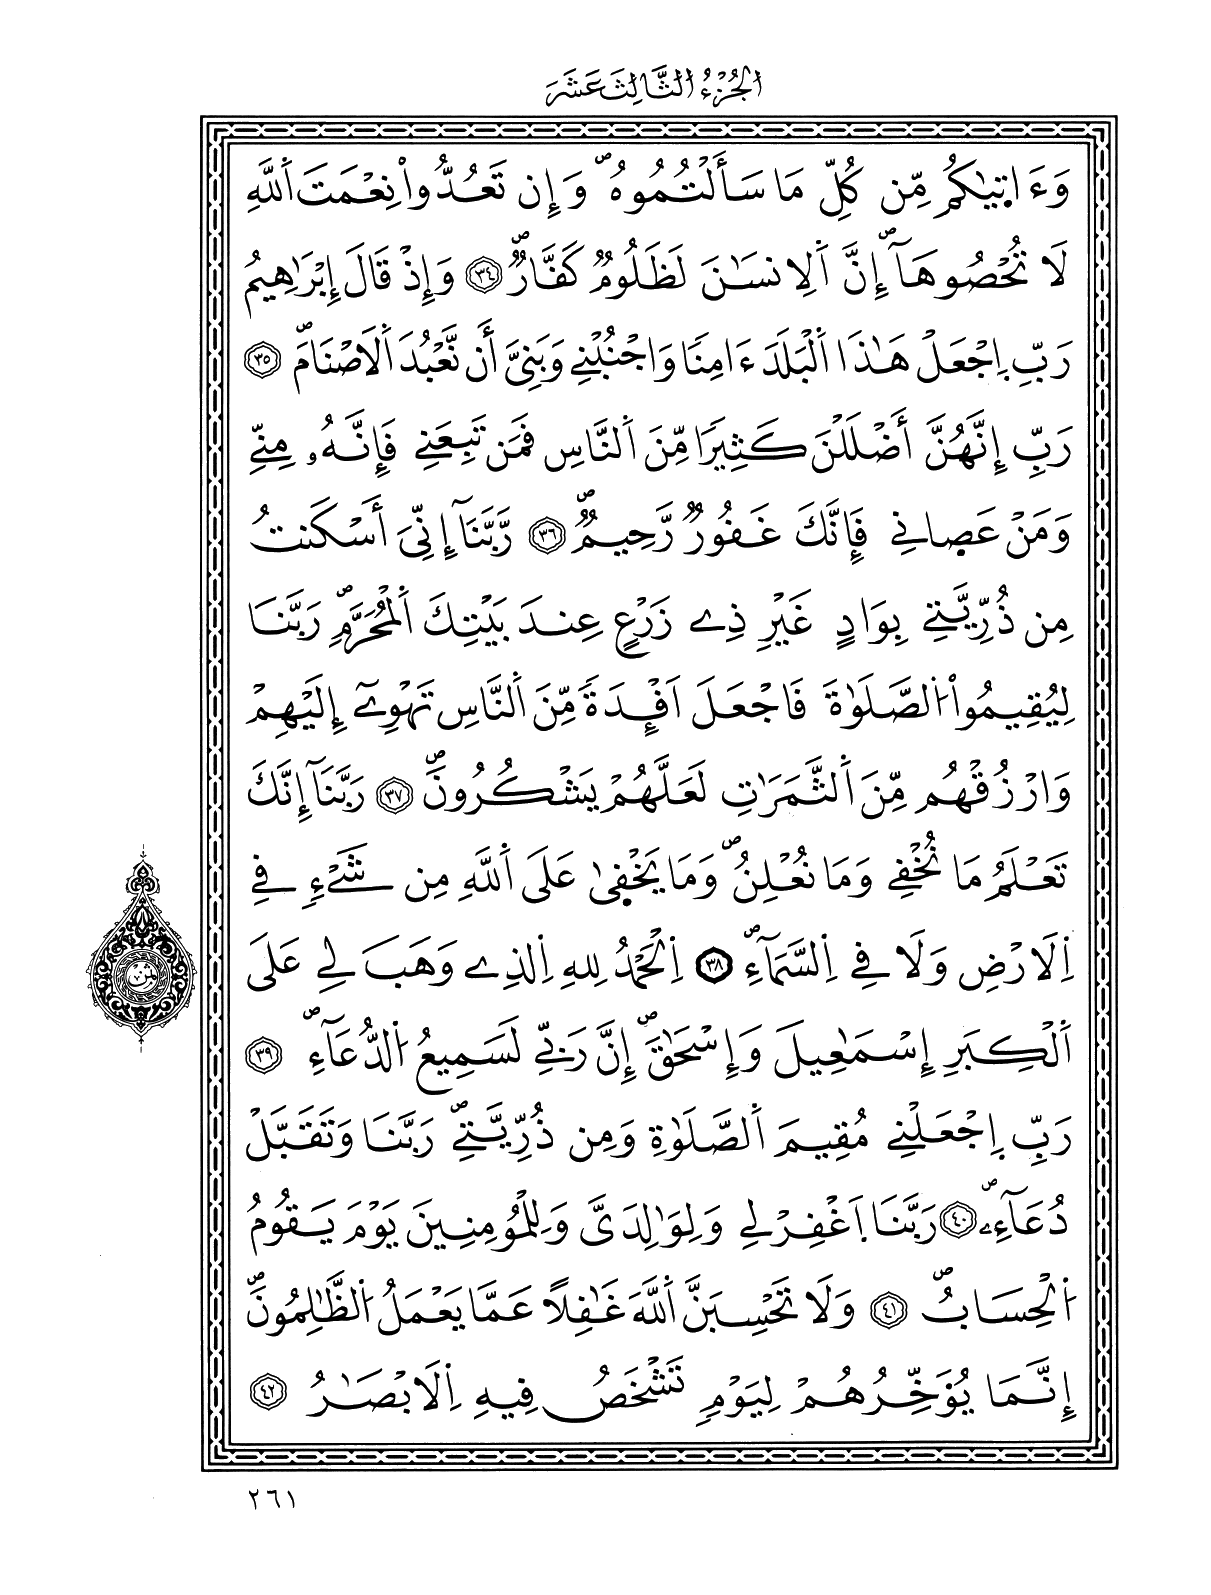 الجزء الثالث عشر
وَءَاتٜيٰكُم مِّن كُلِّ مَا سَأَلْتُمُوهُۖ وَإِن تَعُدُّواْ نِعْمَتَ اَ۬للَّهِ
لَا تُحْصُوهَآۖ إِنَّ اَ۬لِانسَٰنَ لَظَلُومٞ كَفَّارٞۖ ٣٤ وَإِذْ قَالَ إِبْرَٰهِيمُ
رَبِّ اِ۪جْعَلْ هَٰذَا اَ۬لْبَلَدَ ءَامِنٗا وَاجْنُبْنِے وَبَنِيَّ أَن نَّعْبُدَ اَ۬لَاصْنَامَۖ ٣٥
رَبِّ إِنَّهُنَّ أَضْلَلْنَ كَثِيرٗا مِّنَ اَ۬لنَّاسِ فَمَن تَبِعَنِے فَإِنَّهُۥ مِنِّے
وَمَنْ عَصٜانِے فَإِنَّكَ غَفُورٞ رَّحِيمٞۖ ٣٦ رَّبَّنَآ إِنِّيَ أَسْكَنتُ
مِن ذُرِّيَّتِے بِوَادٍ غَيْرِ ذِے زَرْعٍ عِندَ بَيْتِكَ اَ۬لْمُحَرَّمِۖ رَبَّنَا
لِيُقِيمُواْ اُ۬لصَّلَوٰةَ فَاجْعَلَ اَفْـِٕدَةٗ مِّنَ اَ۬لنَّاسِ تَهْوِےٓ إِلَيْهِمْ
وَارْزُقْهُم مِّنَ اَ۬لثَّمَرَٰتِ لَعَلَّهُمْ يَشْكُرُونَۖ ٣٧ رَبَّنَآ إِنَّكَ
تَعْلَمُ مَا نُخْفِے وَمَا نُعْلِنُۖ وَمَا يَخْفٜىٰ عَلَى اَ۬للَّهِ مِن شَےْءٖ فِے
اِ۬لَارْضِ وَلَا فِے اِ۬لسَّمَآءِۖ ٣٨ اِ۬لْحَمْدُ لِلهِ اِ۬لذِے وَهَبَ لِے عَلَى
اَ۬لْكِبَرِ إِسْمَٰعِيلَ وَإِسْحَٰقَۖ إِنَّ رَبِّے لَسَمِيعُ اُ۬لدُّعَآءِۖ ٣٩
رَبِّ اِ۪جْعَلْنِے مُقِيمَ اَ۬لصَّلَوٰةِ وَمِن ذُرِّيَّتِےۖ رَبَّنَا وَتَقَبَّلْ
دُعَآءِۦۖ ٤٠ رَبَّنَا اَ۪غْفِرْ لِے وَلِوَٰلِدَيَّ وَلِلْمُومِنِينَ يَوْمَ يَقُومُ
اُ۬لْحِسَابُۖ ٤١ وَلَا تَحْسِبَنَّ اَ۬للَّهَ غَٰفِلاً عَمَّا يَعْمَلُ اُ۬لظَّٰلِمُونَۖ
إِنَّمَا يُؤَخِّرُهُمْ لِيَوْمٖ تَشْخَصُ فِيهِ اِ۬لَابْصَٰرُ ٤٢
٢٦١